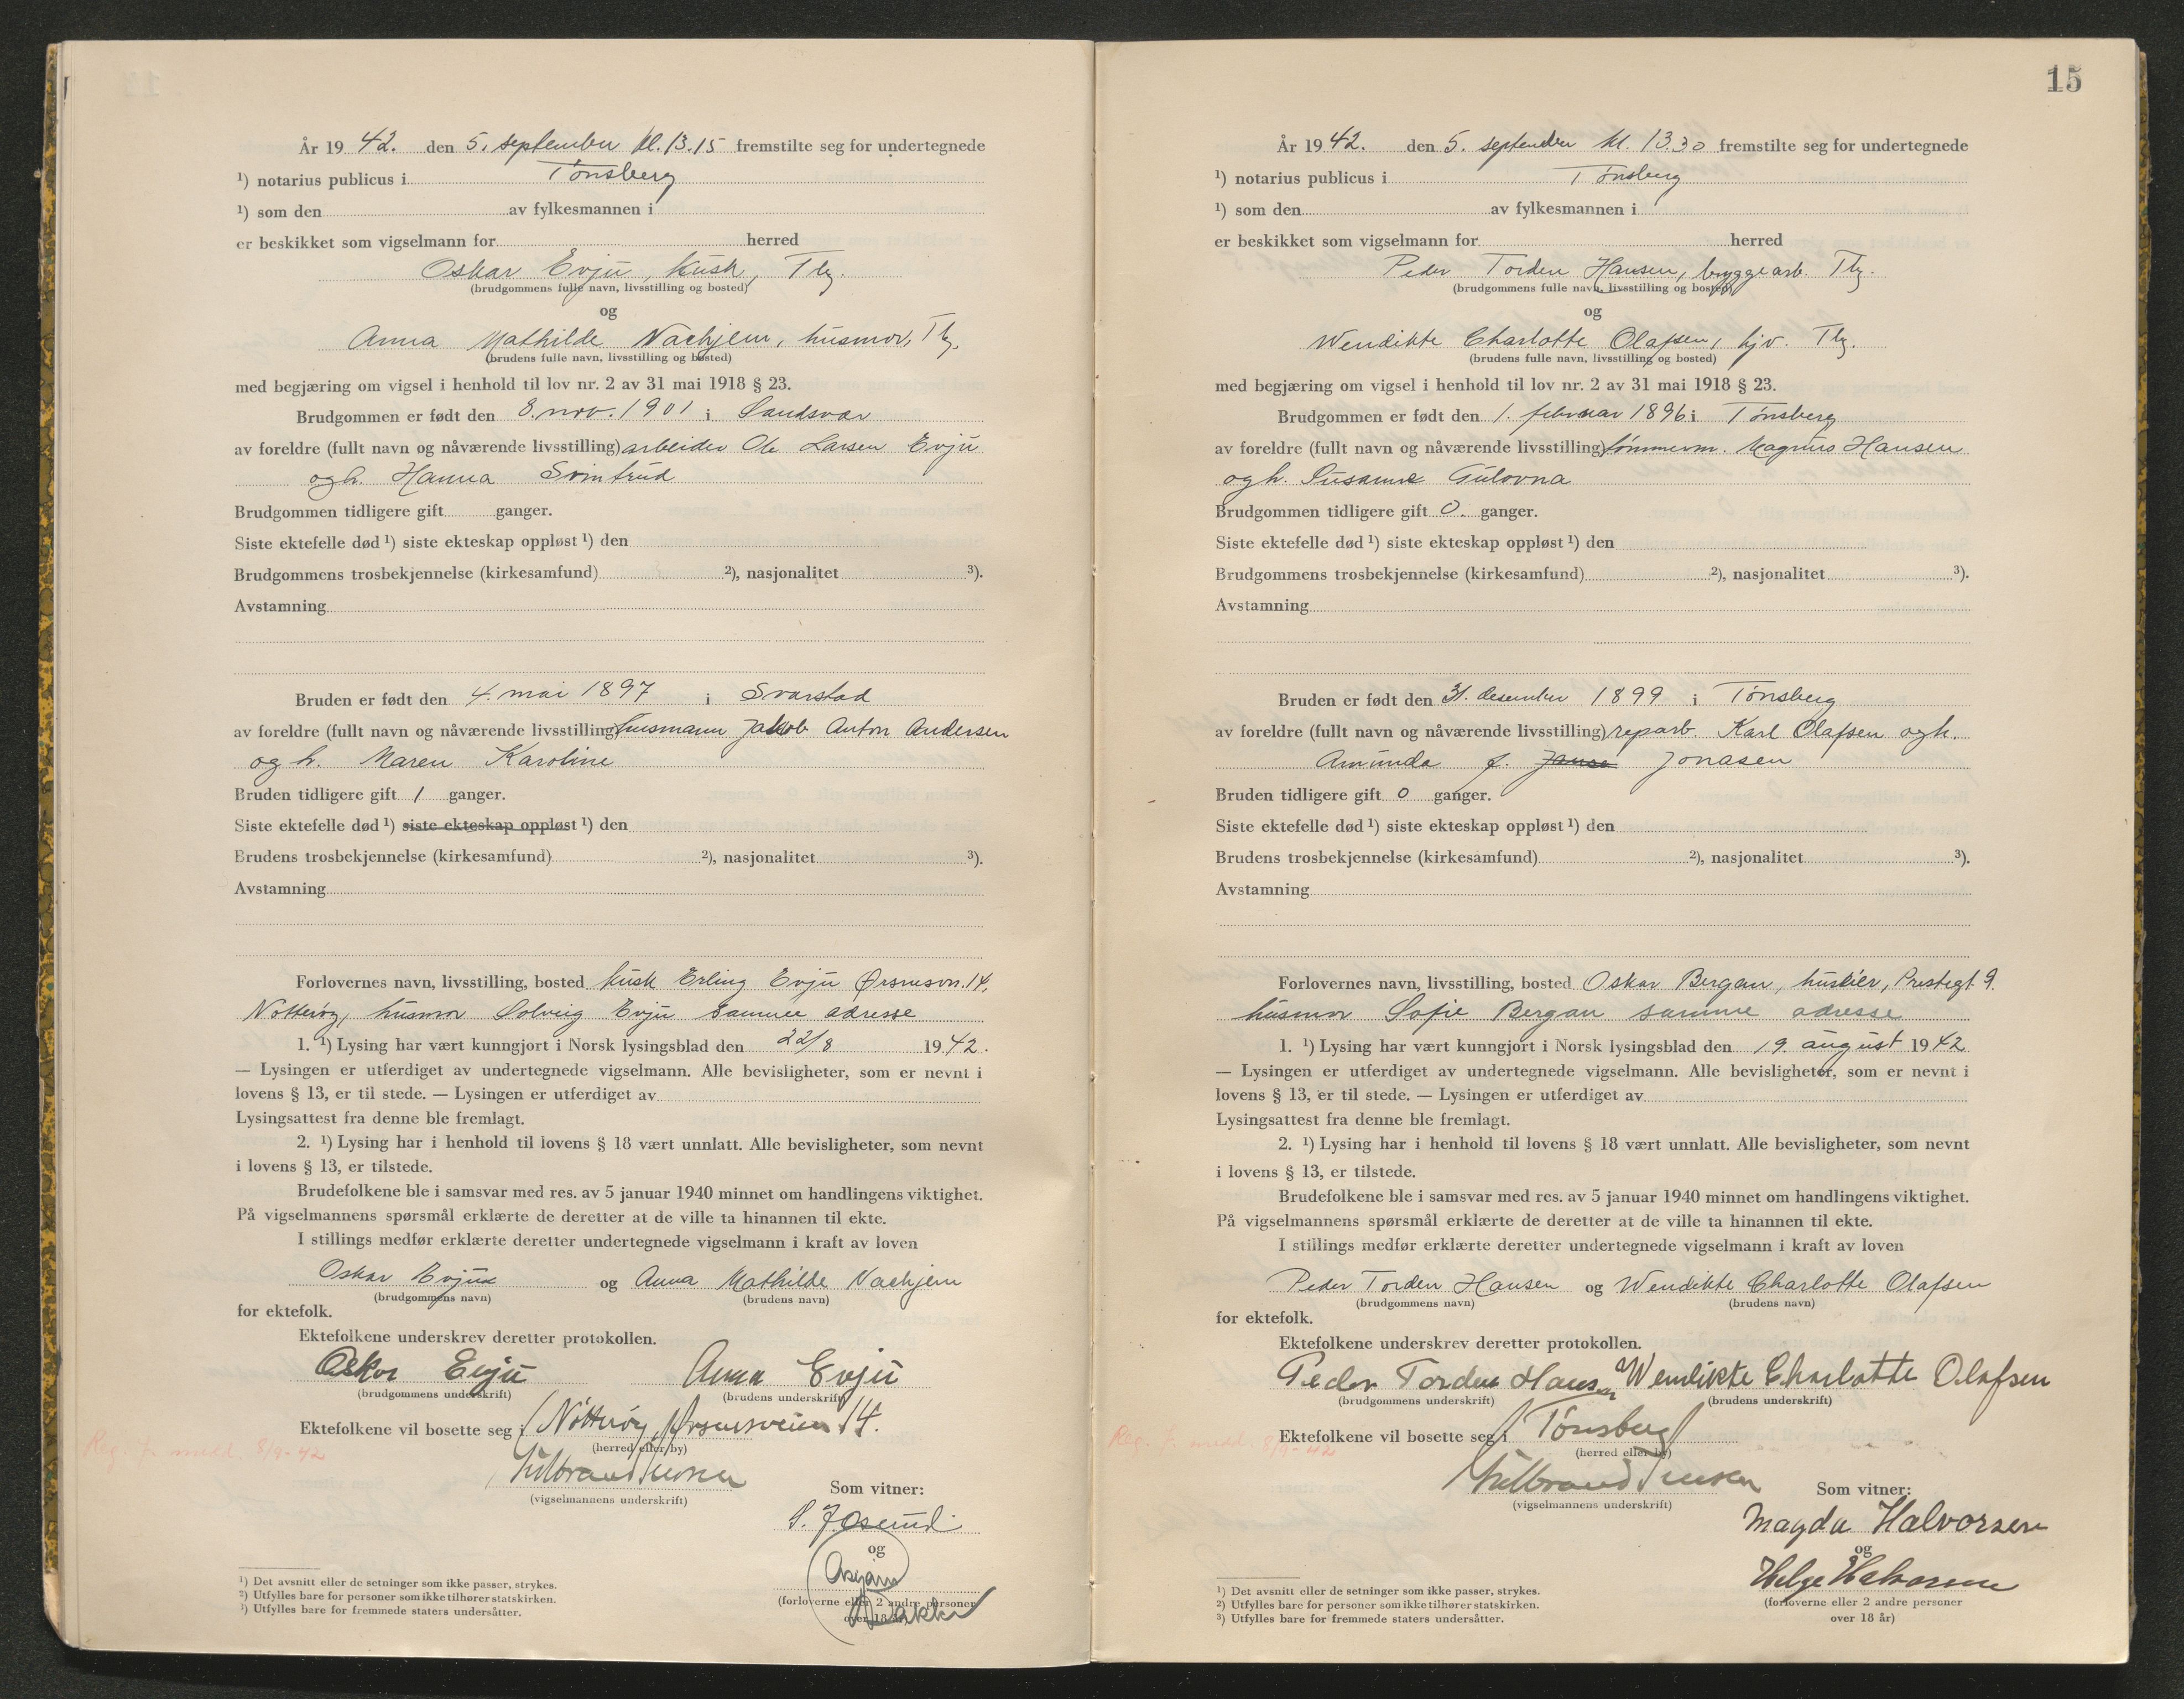 År 19 42. den 5. september kl. 13.15 fremstilte seg for undertegnede
¹) notarius publicus i Tønsberg
¹) som den av fylkesmannen i
er beskikket som vigselmann for herred
Oskar Evju, kusk, Tbg.
(brudgommens fulle navn, livsstilling og bosted)
og
Anna Mathilde Nachjem, husmor, Tbg.
(brudens fulle navn, livsstilling og bosted)
med begjæring om vigsel i henhold til lov nr. 2 av 31 mai 1918 § 23.
Brudgommen er født den 8. nov. 1901 i Sandsvær
av foreldre (fullt navn og nåværende livsstilling) arbeider Ole Larsen Evju
og h. Hanna Svintrud
Brudgommen tidligere gift ganger.
Siste ektefelle død ¹) siste ekteskap oppløst ¹) den
Brudgommens trosbekjennelse (kirkesamfund) ²), nasjonalitet ³).
Avstamning
Bruden er født den 4. mai 1897 i Svarstad
av foreldre (fullt navn og nåværende livsstilling) husmann Jakob Anton Andersen
og h. Maren Karoline
Bruden tidligere gift 1 ganger.
Siste ektefelle død ¹) siste ekteskap oppløst ¹) den
Brudens trosbekjennelse (kirkesamfund) ²), nasjonalitet ³).
Avstamning
Forlovernes navn, livsstilling, bosted kusk Erling Evju Ørsnesvn. 14,
Nøtterøy, husmor Solveig Evju samme adresse
1. ¹) Lysing har vært kunngjort i Norsk lysingsblad den 22/8 19 42.
— Lysingen er utferdiget av undertegnede vigselmann. Alle bevisligheter, som er nevnt i
lovens § 13, er til stede. — Lysingen er utferdiget av
Lysingsattest fra denne ble fremlagt.
2. ¹) Lysing har i henhold til lovens § 18 vært unnlatt. Alle bevisligheter, som nevnt
i lovens § 13, er tilstede.
Brudefolkene ble i samsvar med res. av 5 januar 1940 minnet om handlingens viktighet.
På vigselmannens spørsmål erklærte de deretter at de ville ta hinannen til ekte.
I stillings medfør erklærte deretter undertegnede vigselmann i kraft av loven
Oskar Evju og Anna Mathilde Nachjem
(brudgommens navn) (brudens navn)
for ektefolk.
Ektefolkene underskrev deretter protokollen.
Oskar Evju Anna Evju
(brudgommens underskrift) (brudens underskrift)
Ektefolkene vil bosette seg i Nøtterøy, Ørsnesveien 14.
(herred eller by)
Reg. f. medd. 8/9-42
(vigselmannens underskrift)
Som vitner:
S. Josund
og
Asbjørn
Bakke
(forloverne eller 2 andre personer
over 18 år)
¹) Det avsnitt eller de setninger som ikke passer, strykes.
²) Utfylles bare for personer som ikke tilhører statskirken.
³) Utfylles bare for fremmede staters undersåtter.
15
År 19 42. den 5. september kl. 13.30 fremstilte seg for undertegnede
¹) notarius publicus i Tønsberg
¹) som den av fylkesmannen i
er beskikket som vigselmann for herred
Peder Torden Hansen, bryggearb. Tbg.
(brudgommens fulle navn, livsstilling og bosted)
og
Wendikte Charlotte Olafsen, hjv. Tbg.
(brudens fulle navn, livsstilling og bosted)
med begjæring om vigsel i henhold til lov nr. 2 av 31 mai 1918 § 23.
Brudgommen er født den 1. februar 1896 i Tønsberg
av foreldre (fullt navn og nåværende livsstilling) tømmerm. Magnus Hansen
og h. Susanne Gulovna
Brudgommen tidligere gift 0. ganger.
Siste ektefelle død ¹) siste ekteskap oppløst ¹) den
Brudgommens trosbekjennelse (kirkesamfund) ²), nasjonalitet ³).
Avstamning
Bruden er født den 31. desember 1899 i Tønsberg
av foreldre (fullt navn og nåværende livsstilling) reparb. Karl Olafsen og h.
Amunda f. Janse Jonasen
Bruden tidligere gift 0 ganger.
Siste ektefelle død ¹) siste ekteskap oppløst ¹) den
Brudens trosbekjennelse (kirkesamfund) ²), nasjonalitet ³).
Avstamning
Forlovernes navn, livsstilling, bosted Oskar Bergan, huseier, Prestegt. 9.
husmor Sofie Bergan samme adresse
1. ¹) Lysing har vært kunngjort i Norsk lysingsblad den 19. august 19 42
— Lysingen er utferdiget av undertegnede vigselmann. Alle bevisligheter, som er nevnt i
lovens § 13, er til stede. — Lysingen er utferdiget av
Lysingsattest fra denne ble fremlagt.
2. ¹) Lysing har i henhold til lovens § 18 vært unnlatt. Alle bevisligheter, som nevnt
i lovens § 13, er tilstede.
Brudefolkene ble i samsvar med res. av 5 januar 1940 minnet om handlingens viktighet.
På vigselmannens spørsmål erklærte de deretter at de ville ta hinannen til ekte.
I stillings medfør erklærte deretter undertegnede vigselmann i kraft av loven
Peder Torden Hansen og Wendikte Charlotte Olafsen
(brudgommens navn) (brudens navn)
for ektefolk.
Ektefolkene underskrev deretter protokollen.
Peder Torden Hansen Wendikte Charlotte Olafsen
(brudgommens underskrift) (brudens underskrift)
Ektefolkene vil bosette seg i Tønsberg
(herred eller by)
Reg. f. medd. 8/9-42
(vigselmannens underskrift)
Som vitner:
Magda Halvorsen
og
Helge Halvorsen
(forloverne eller 2 andre personer
over 18 år)
¹) Det avsnitt eller de setninger som ikke passer, strykes.
²) Utfylles bare for personer som ikke tilhører statskirken.
³) Utfylles bare for fremmede staters undersåtter.